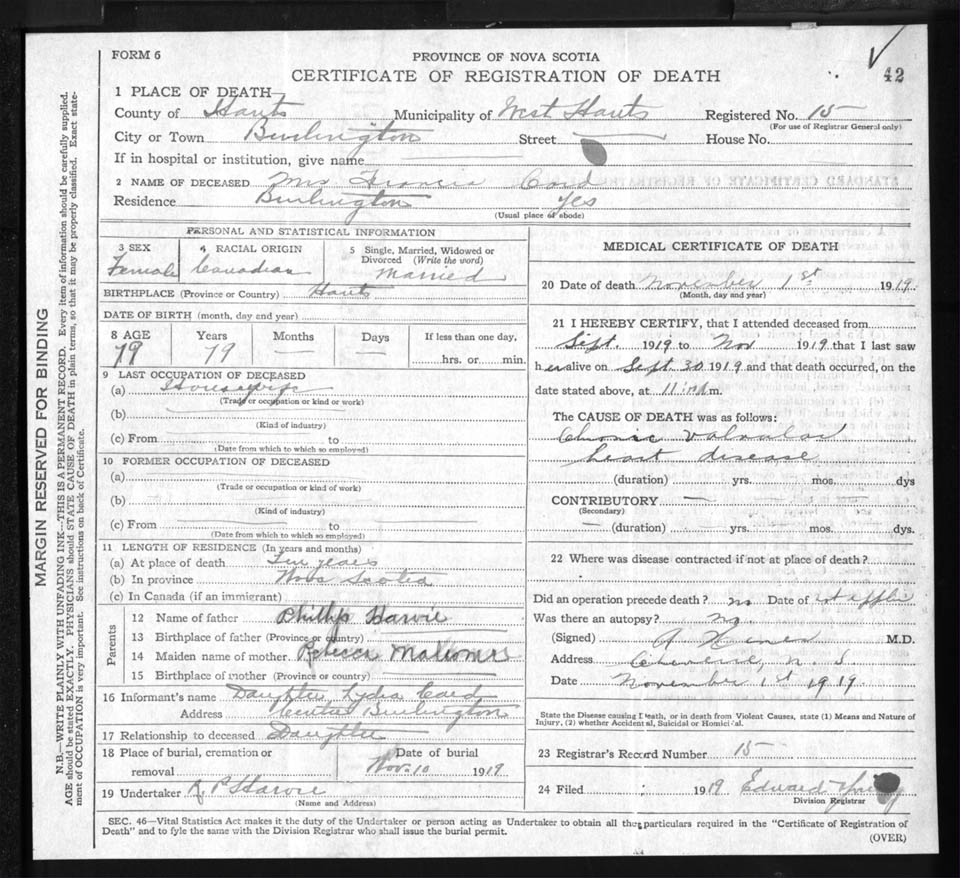 FORM 6
PROVINCE OF NOVA SCOTIA
42
CERTIFICATE OF REGISTRATION OF DEATH
1 PLACE OF DEATH
County of Hants Municipality of West Hants Registered No. 15
(For use of Registrar General only)
City or Town Burlington Street House No.
If in hospital or institution, give name
2 NAME OF DECEASED Mrs Francis Card
Residence Burlington Yes
(Usual place of abode)
PERSONAL AND STATISTICAL INFORMATION
3 SEX 4 RACIAL ORIGIN 5 Single, Married, Widowed or Divorced (Write the word)
Female Canadian Married
BIRTHPLACE (Province or Country) Hants
DATE OF BIRTH (month, day and year)
8 AGE Years Months Days If less than one day,
79 79 — — hrs. or min.
9 LAST OCCUPATION OF DECEASED
(a) Housewife
(Trade or occupation or kind or work)
(b)
(Kind of industry)
(c) From to
(Date from which to which so employed)
10 FORMER OCCUPATION OF DECEASED
(a)
(Trade or occupation or kind of work)
(b)
(Kind of industry)
(c) From to
(Date from which to which so employed)
11 LENGTH OF RESIDENCE (In years and months)
(a) At place of death years
(b) In province Nova Scotia
(c) In Canada (if an immigrant)
Parents
12 Name of father Phillip Harvie
13 Birthplace of father (Province or country)
14 Maiden name of mother Rebecca
15 Birthplace of mother (Province or country)
16 Informant's name Daughter Lydia Card
Address Burlington
17 Relationship to deceased Daughter
18 Place of burial, cremation or Date of burial
removal Nov. 10 1919
19 Undertaker R P Harvie
(Name and Address)
MEDICAL CERTIFICATE OF DEATH
20 Date of death November 1st 1919.
(Month, day and year)
21 I HEREBY CERTIFY, that I attended deceased from
Sept. 1919 to Nov 1919 that I last saw
her alive on Sept 30 1919 and that death occurred, on the
date stated above, at 11 m.
The CAUSE OF DEATH was as follows:
Chronic valvular
heart disease
(duration) yrs. mos. dys
CONTRIBUTORY —
(Secondary)
— (duration) yrs. mos. dys.
22 Where was disease contracted if not at place of death?
Did an operation precede death? no Date of
Was there an autopsy? no
(Signed) M.D.
Address N. S
Date November 1st 1919.
State the Disease causing Death, or in death from Violent Causes, state (1) Means and Nature of
Injury, (2) whether Accidental, Suicidal or Homicidal.
23 Registrar's Record Number 15
24 Filed 1919 Edward
Division Registrar
SEC. 46—Vital Statistics Act makes it the duty of the Undertaker or person acting as Undertaker to obtain all the particulars required in the "Certificate of Registration of
Death" and to fyle the same with the Division Registrar who shall issue the burial permit.
(OVER)
MARGIN RESERVED FOR BINDING
N.B.—WRITE PLAINLY WITH UNFADING INK—THIS IS A PERMANENT RECORD. Every item of information should be carefully supplied.
AGE should be stated EXACTLY. PHYSICIANS should STATE CAUSE OF DEATH in plain terms, so that it may be properly classified. Exact state-
ment of OCCUPATION is very important. See instructions on back of Certificate.